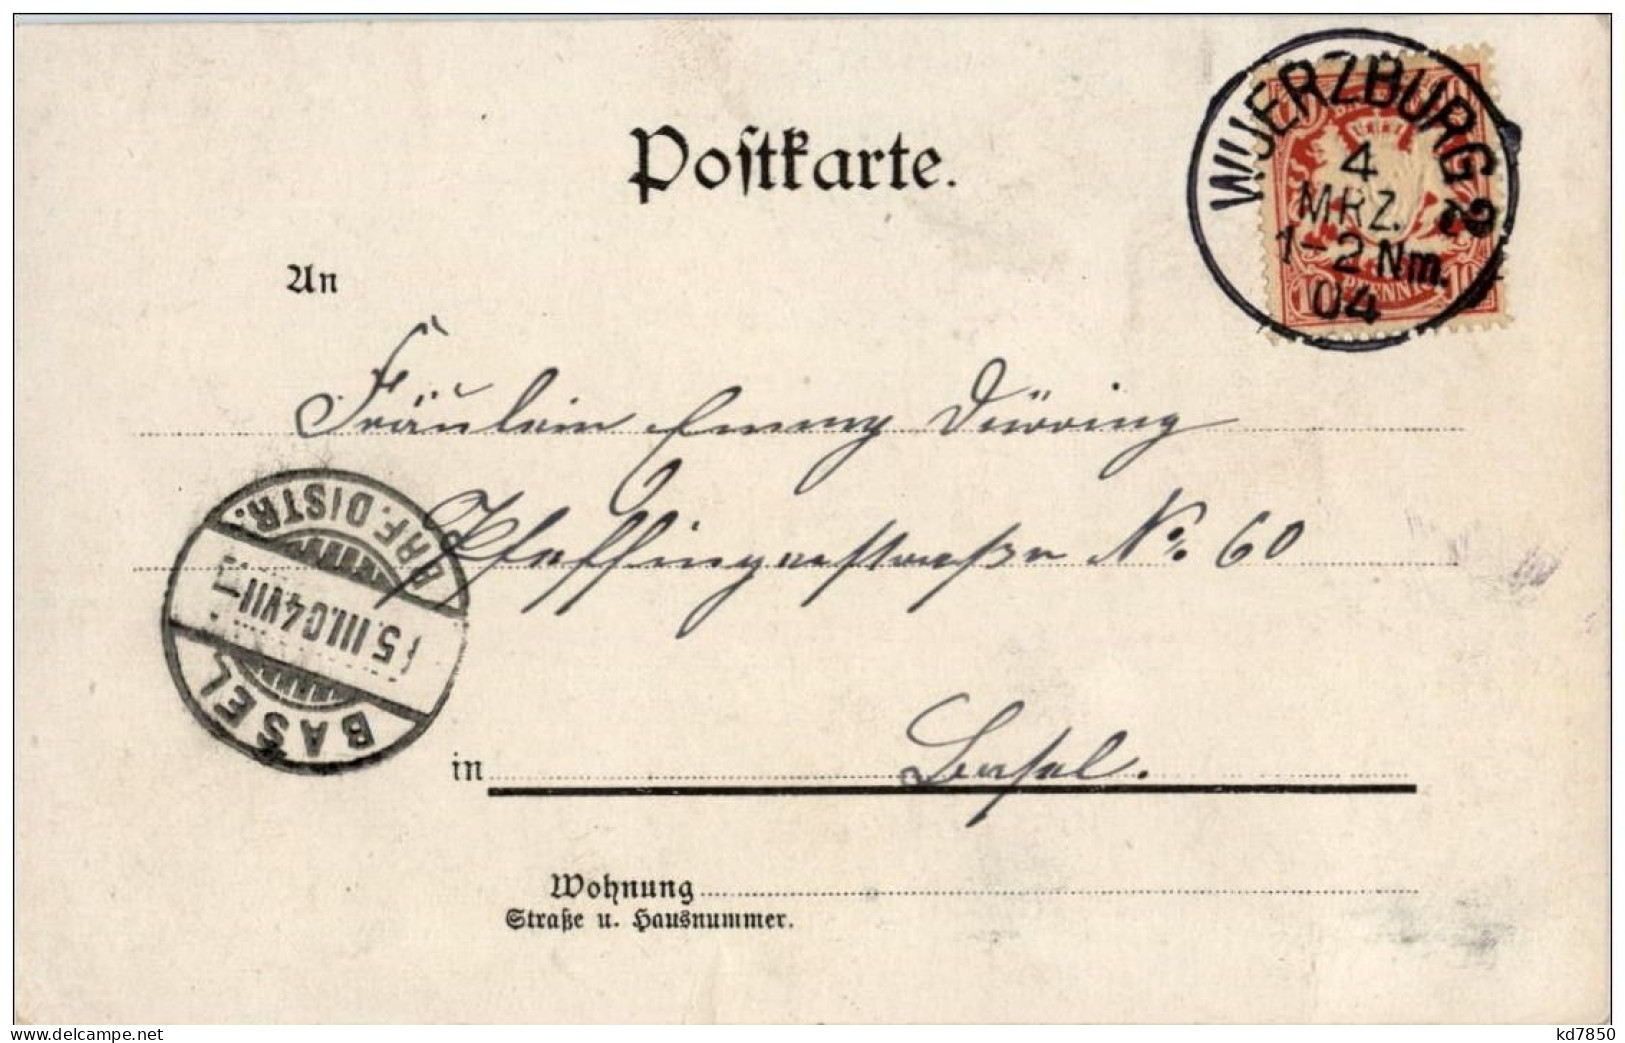 Postkarte.
WUERZBURG 2
4
MRZ.
1-2 Nm.
04
10 PFENNIG 10
An
Fräulein Emmy Düring
Pfeffingerstraße No. 60
BRF. DISTR.
5.III.04.VII-
BASEL
in Basel.
Wohnung
Straße u. Hausnummer.
www.delcampe.net
kd7850